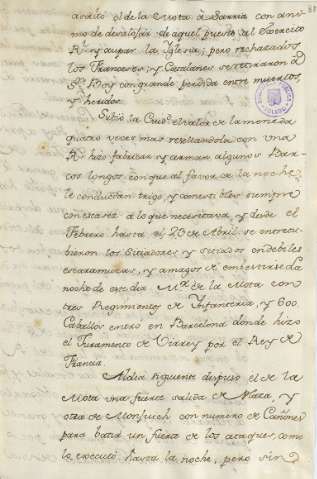 acudió el de la Mota à Sarria con áni-
mo de desalojar de aquel puesto al Exercito
Rl. y ocupar la Iglesia; pero rechazados
los Franceses, y Catalanes se retiraron à
Sn. Roy con grande perdida entre muertos,
y heridos.
Subió la Ciud. el valor de la moneda
quatro veces mas resellandola con una
B. hizo fabricar y armar algunos Bar-
cos longos con que al favor de la noche
le conducian trigo, y comestibles siempre
con escasez à lo que necesitava, y desde el
Febrero hasta el 23 de Abril se entretu-
bieron los Sitiadores y sitiados en debiles
escaramuzas, y amagos de embestirse. La
noche de este dia Mr. de la Mota con
tres Regimientos de Infanteria, y 600
Caballos entró en Barcelona donde hizo
el Juramento de Virrey por el Rey de
Francia.
Al dia siguiente dispuso el de la
Mota una fuerte salida de Plaza, y
otra de Monjuich con numero de Cañones
para batir un fuerte de los ataques, como
lo executó hasta la noche, pero sin